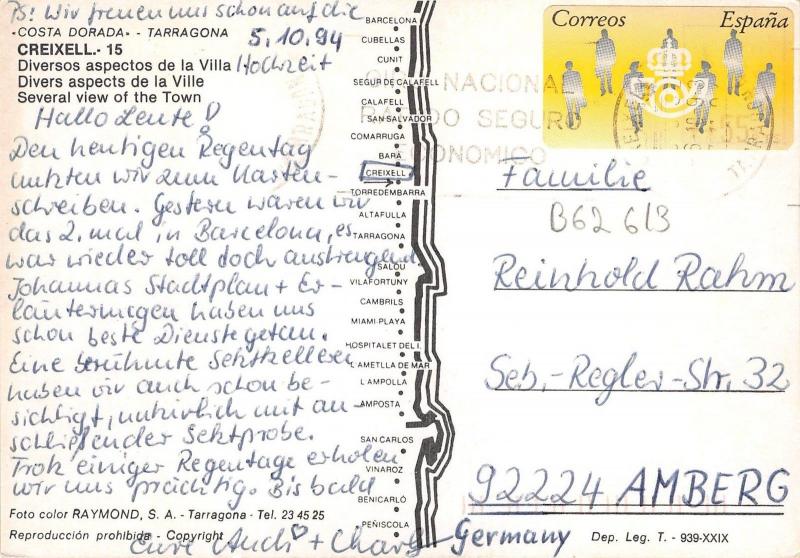 PS! Wir freuen uns schon auf die
Hochzeit
«COSTA DORADA» - TARRAGONA
CREIXELL.- 15
Diversos aspectos de la Villa
Divers aspects de la Ville
Several view of the Town
5.10.94
Hallo Leute!
Den heutigen Regentag
nutzten wir zum Karten-
schreiben. Gestern waren wir
das 2. mal in Barcelona, es
war wieder toll doch anstrengend
Johannas Stadtplan + Er-
läuterungen haben uns
schon beste Dienste getan.
Eine berühmte Sektkellerei
haben wir auch schon be-
sichtigt, natürlich mit an-
schließender Sektprobe.
Trotz einiger Regentage erholen
wir uns prächtig. Bis bald
Eure + Charly
Foto color RAYMOND, S. A. - Tarragona - Tel. 23 45 25
Reproducción prohibida - Copyright
BARCELONA
CUBELLAS
CUNIT
SEGUR DE CALAFELL
CALAFELL
SAN SALVADOR
COMARRUGA
BARÁ
CREIXELL
TORREDEMBARRA
ALTAFULLA
TARRAGONA
SALOU
VILAFORTUNY
CAMBRILS
MIAMI-PLAYA
HOSPITALET DEL I.
L AMETLLA DE MAR
L AMPOLLA
AMPOSTA
SAN CARLOS
VINAROZ
BENICARLÓ
PEÑISCOLA
Correos España
NACIONAL
SEGURO
ECONOMICO
Familie
B62 613
Reinhold Rahm
Seb.-Regler-Str. 32
92224 AMBERG
Germany
Dep. Leg. T. - 939-XXIX